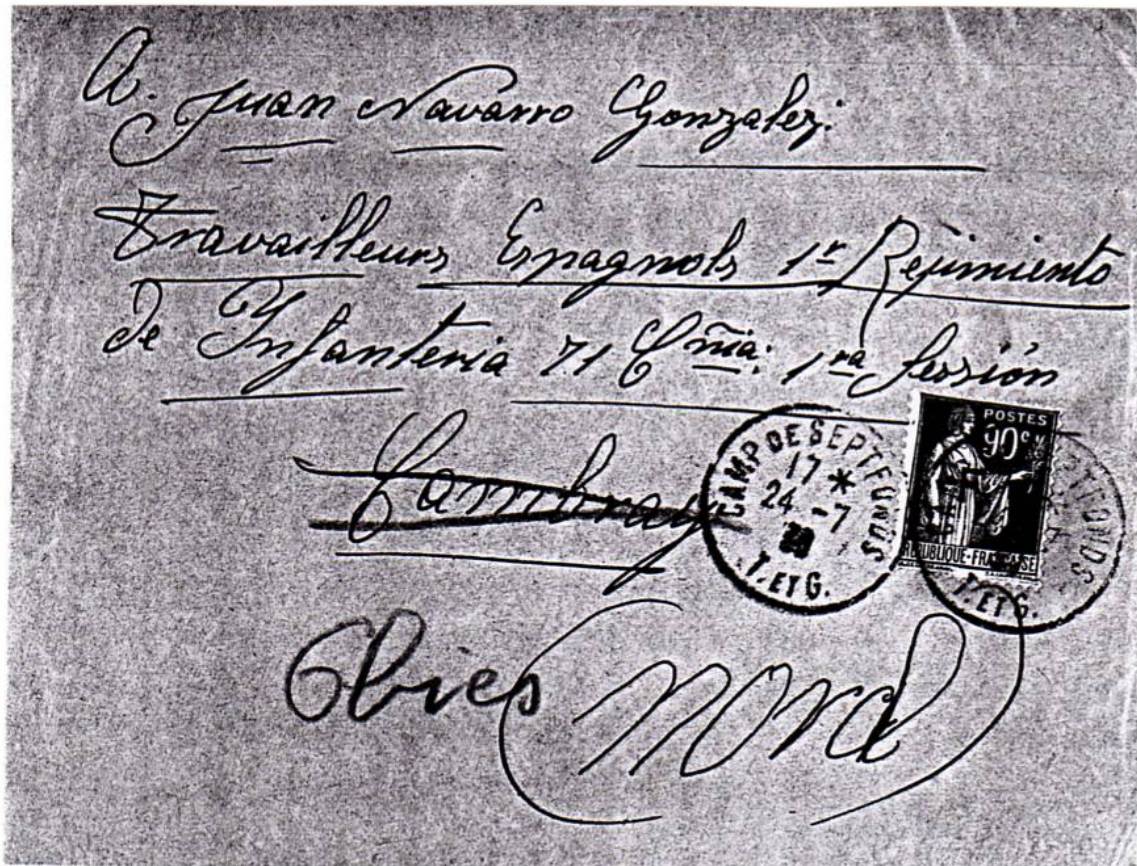 A. Juan Navarro Gonzalez.
Travailleurs Espagnols 1er Rejimiento
de Ynfanteria 71 Cñia: 1ra Sessión
Cambray
CAMP DE SEPTFONDS
17 *
24 -7
T. ET G.
POSTES
90c
REPUBLIQUE-FRANÇAISE
TFONDS
T. ET G.
Obies
(Nord)